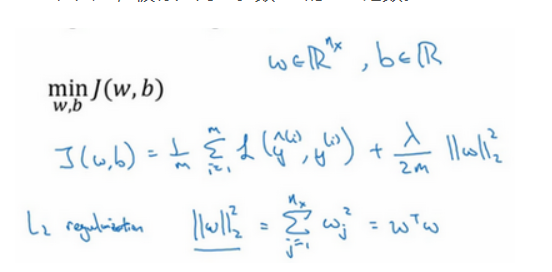 w ∈ ℝ^{n_x}, b ∈ ℝ
min_{w,b} J(w, b)
J(w,b) = 1/m Σ_{i=1}^{m} ℒ(ŷ^{(i)}, y^{(i)}) + λ/2m ||w||_2^2
L_2 regularization ||w||_2^2 = Σ_{j=1}^{n_x} w_j^2 = w^T w